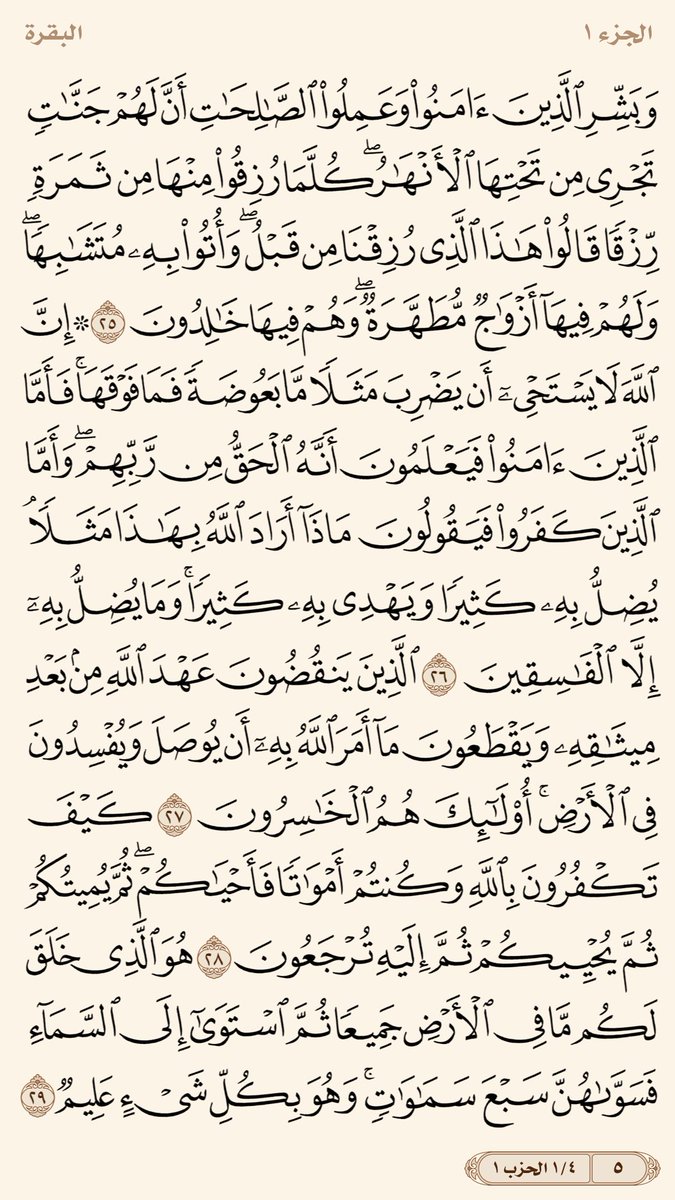 الجزء ١ البقرة
وَبَشِّرِ ٱلَّذِينَ ءَامَنُوا۟ وَعَمِلُوا۟ ٱلصَّـٰلِحَـٰتِ أَنَّ لَهُمْ جَنَّـٰتٍ
تَجْرِى مِن تَحْتِهَا ٱلْأَنْهَـٰرُ ۖ كُلَّمَا رُزِقُوا۟ مِنْهَا مِن ثَمَرَةٍ
رِّزْقًا قَالُوا۟ هَـٰذَا ٱلَّذِى رُزِقْنَا مِن قَبْلُ ۖ وَأُتُوا۟ بِهِۦ مُتَشَـٰبِهًا ۖ
وَلَهُمْ فِيهَآ أَزْوَٰجٌ مُّطَهَّرَةٌ ۖ وَهُمْ فِيهَا خَـٰلِدُونَ ٢٥ ۞ إِنَّ
ٱللَّهَ لَا يَسْتَحْىِۦٓ أَن يَضْرِبَ مَثَلًا مَّا بَعُوضَةً فَمَا فَوْقَهَا ۚ فَأَمَّا
ٱلَّذِينَ ءَامَنُوا۟ فَيَعْلَمُونَ أَنَّهُ ٱلْحَقُّ مِن رَّبِّهِمْ ۖ وَأَمَّا
ٱلَّذِينَ كَفَرُوا۟ فَيَقُولُونَ مَاذَآ أَرَادَ ٱللَّهُ بِهَـٰذَا مَثَلًا ۘ
يُضِلُّ بِهِۦ كَثِيرًا وَيَهْدِى بِهِۦ كَثِيرًا ۚ وَمَا يُضِلُّ بِهِۦٓ
إِلَّا ٱلْفَـٰسِقِينَ ٢٦ ٱلَّذِينَ يَنقُضُونَ عَهْدَ ٱللَّهِ مِنۢ بَعْدِ
مِيثَـٰقِهِۦ وَيَقْطَعُونَ مَآ أَمَرَ ٱللَّهُ بِهِۦٓ أَن يُوصَلَ وَيُفْسِدُونَ
فِى ٱلْأَرْضِ ۚ أُو۟لَـٰٓئِكَ هُمُ ٱلْخَـٰسِرُونَ ٢٧ كَيْفَ
تَكْفُرُونَ بِٱللَّهِ وَكُنتُمْ أَمْوَٰتًا فَأَحْيَـٰكُمْ ۖ ثُمَّ يُمِيتُكُمْ
ثُمَّ يُحْيِيكُمْ ثُمَّ إِلَيْهِ تُرْجَعُونَ ٢٨ هُوَ ٱلَّذِى خَلَقَ
لَكُم مَّا فِى ٱلْأَرْضِ جَمِيعًا ثُمَّ ٱسْتَوَىٰٓ إِلَى ٱلسَّمَآءِ
فَسَوَّىٰهُنَّ سَبْعَ سَمَـٰوَٰتٍ ۚ وَهُوَ بِكُلِّ شَىْءٍ عَلِيمٌ ٢٩
٥ ١/٤ الحزب ١